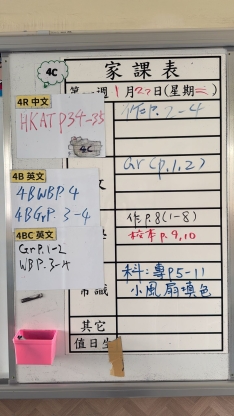 4C
家課表
1月2?日(星期三)
4R 中文
HKAT P34-35
4C
P.2-4
4B 英文
4B WB P.4
4B Gr P. 3-4
Gr (p.1,2)
4BC 英文
Gr P. 1-2
WB P. 3-4
作 P.8 (1-8)
P.9,10
常識
科:專 P5-11
小風扇填色
其它
值日生